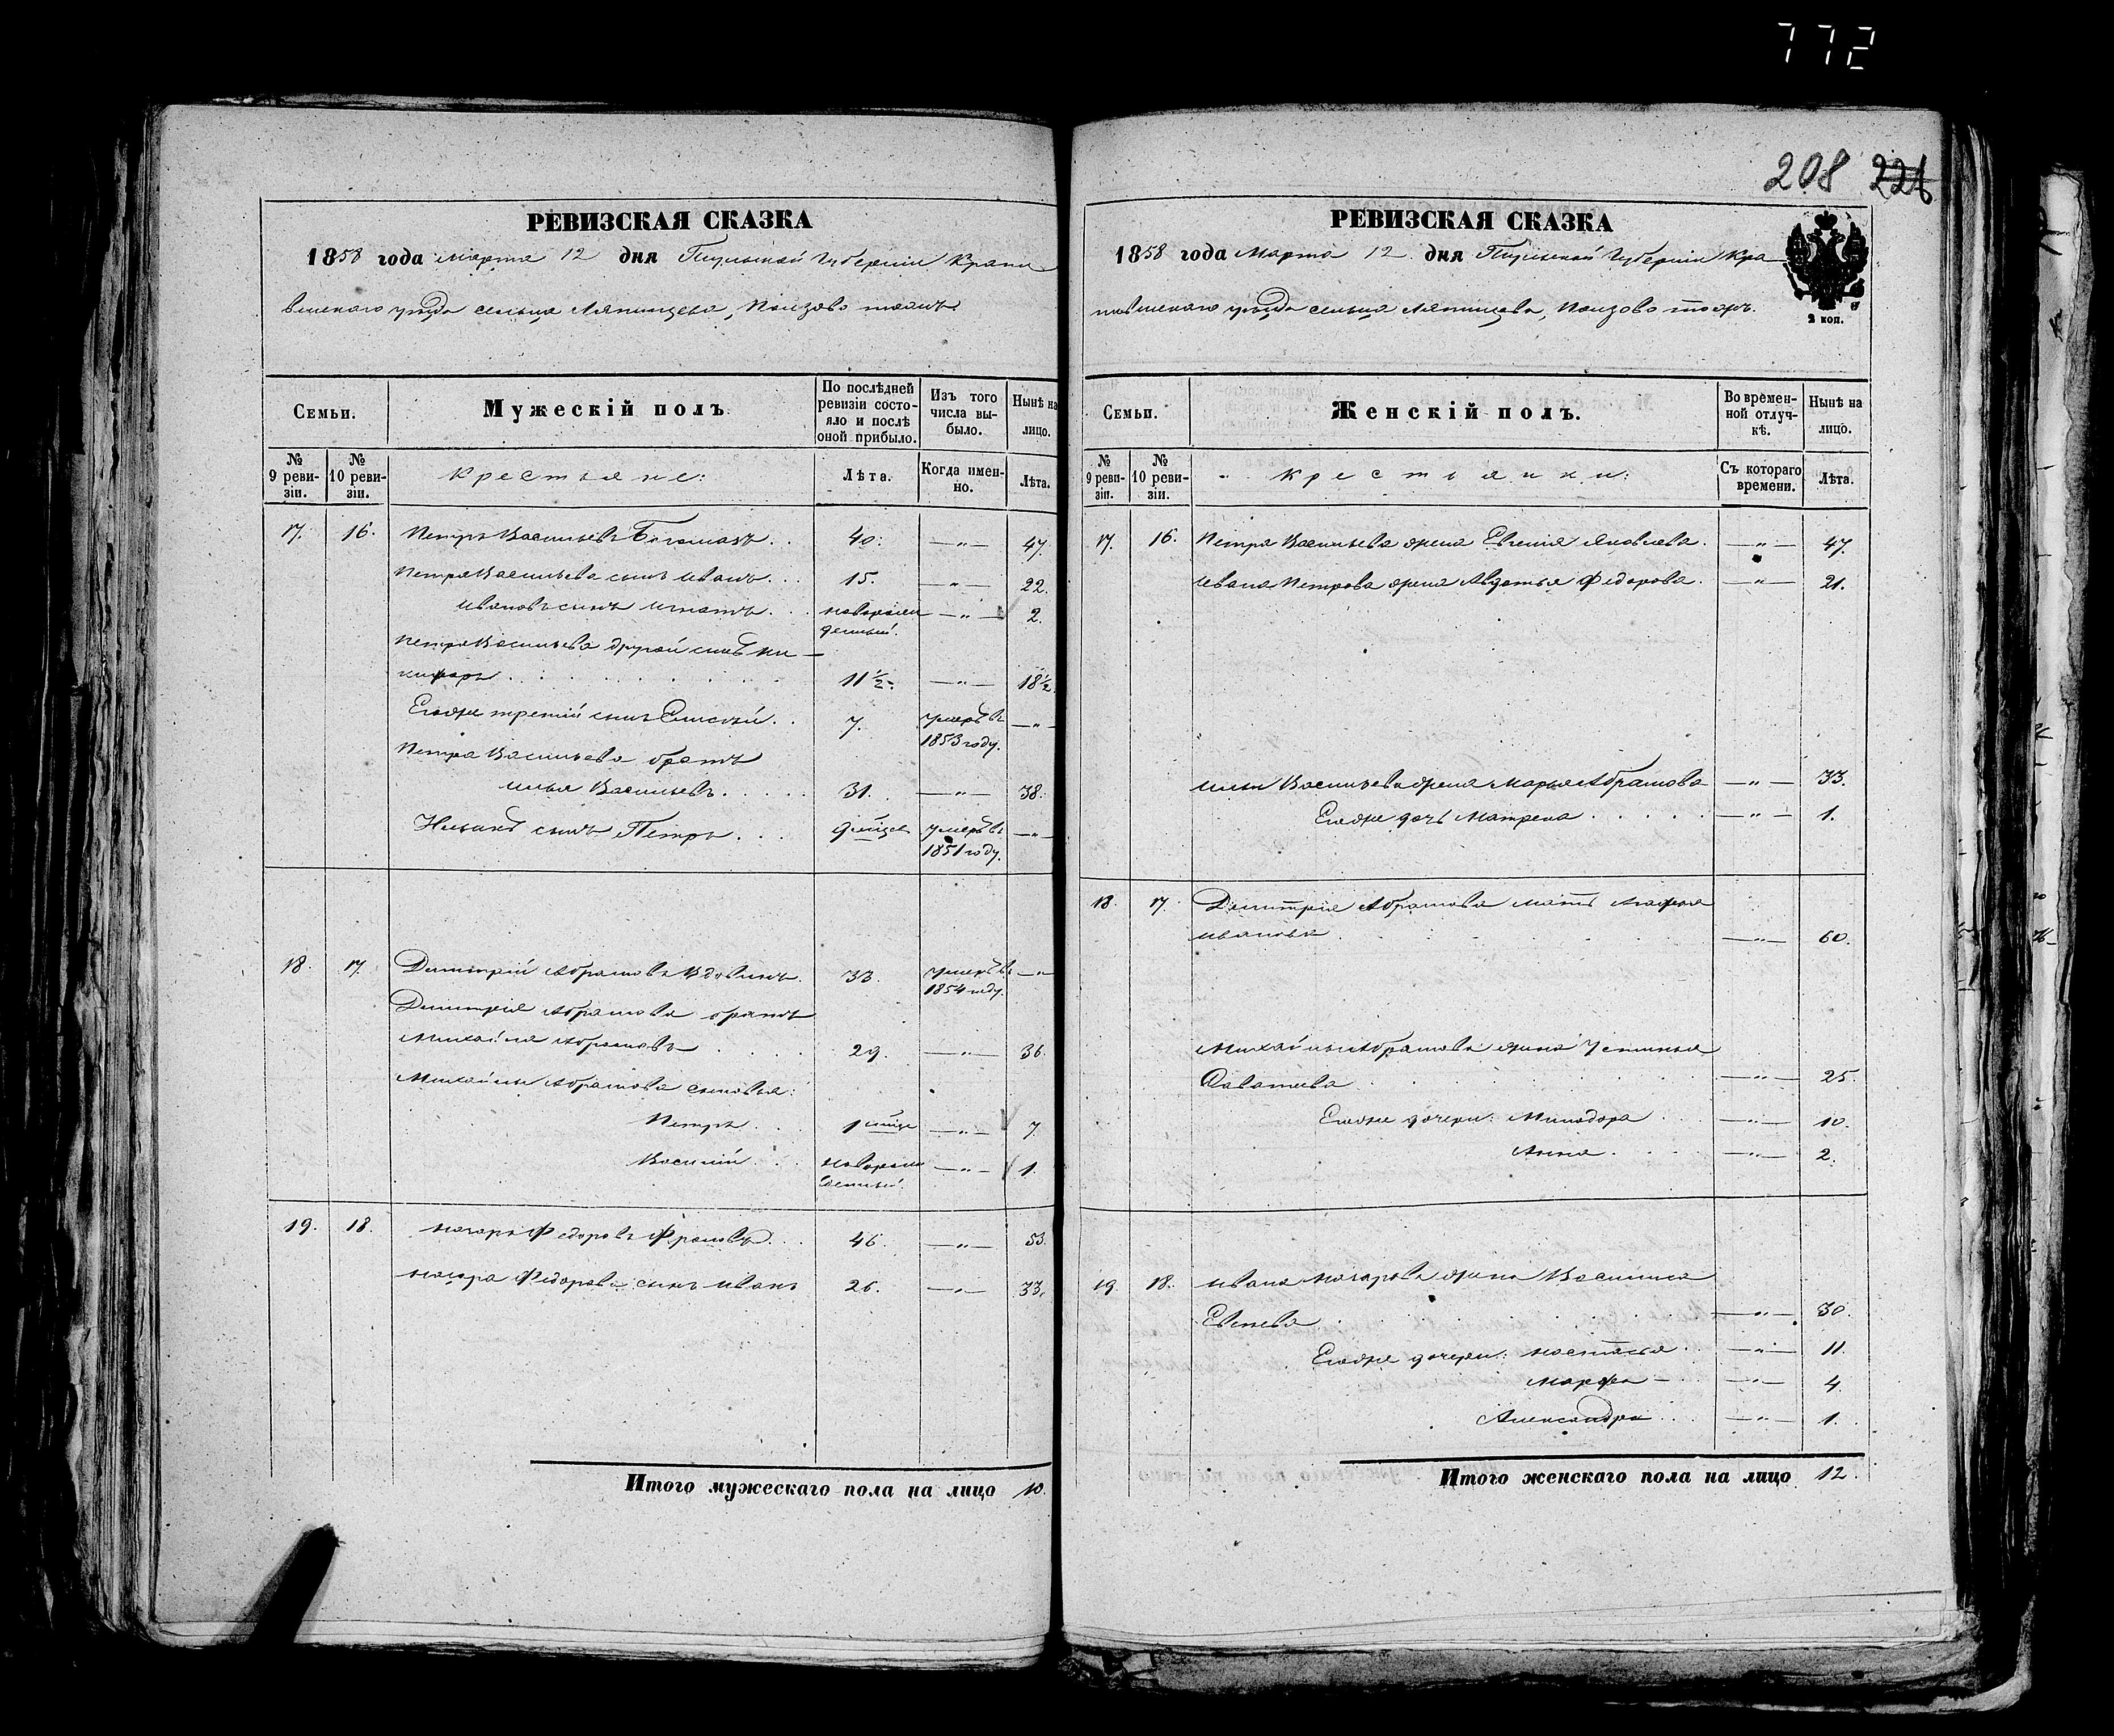 772
208 226
РЕВИЗСКАЯ СКАЗКА
1858 года Марта 12 дня Тульской Губерніи Крапи
венскаго уѣзда сельца Ляпищева, тожъ
Семьи.
Мужескій полъ
По послѣдней ревизіи состо-яло и послѣ оной прибыло.
Изъ того числа вы-было.
Нынѣ на лицо.
№ 9 реви-зіи.
№ 10 реви-зіи.
Крестьяне:
Лѣта.
Когда имен-но.
Лѣта.
17. 16. Петръ Васильевъ . . 40. —"— 47.
Петра Васильева сынъ Иванъ . . . 15. —"— 22.
Ивановъ сынъ Игнатъ . . новорож денный. —"— 2.
Петра Васильева другой сынъ Ни—
кифоръ . . . 11½ —"— 18½.
Егоже третій сынъ Елисѣй . . 7. умеръ въ 1853 году. —"—
Петра Васильева братъ
Илья Васильевъ . . . . . 31. —"— 38.
Ильинъ сынъ Петръ . . . 9 мѣсяц умеръ въ 1851 году. —"—
18. 17. Дмитрій Абрамовъ Вдовинъ. 33. умеръ въ 1854 году. —"—
Дмитрія Абрамова братъ
Михайла Абрамовъ . . . . 29. —"— 36.
Михайлы Абрамова сыновья:
Петръ . . . 1 мѣсц —"— 7.
Василій . . . новорож денный. —"— 1.
19. 18. Назаръ Федоровъ Фроловъ . . 46. —"— 53.
Назара Федорова сынъ Иванъ 26. —"— 33.
Итого мужескаго пола на лицо 10.
РЕВИЗСКАЯ СКАЗКА
1858 года Марта 12 дня Тульской Губерніи Кра—
пивенскаго уѣзда сельца Ляпищева, тожъ.
2 коп.
Семьи.
Женскій полъ.
Во времен-ной отлуч-кѣ.
Нынѣ на лицо.
№ 9 реви-зіи.
№ 10 реви-зіи.
Крестьянки:
Съ котораго времени.
Лѣта.
17. 16. Петра Васильева жена Евгенія Яковлева. —"— 47.
Ивана Петрова жена Авдотья Федорова. —"— 21.
Ильи Васильева жена Марья Абрамова —"— 33.
Егоже дочь Матрена . . . . . —"— 1.
18. 17. Дмитрія Абрамова мать Агафья
Иванова . . . —"— 60.
Михайлы Абрамова жена Устинья
Саватеева . . . —"— 25.
Егоже дочери: Минодора . . —"— 10.
Анна . . . . —"— 2.
19. 18. Ивана Назарова жена Василиса
Евсеева . . . —"— 30.
Егоже дочери: Настасья . . —"— 11.
Марфа — . —"— 4.
Александра . . . —"— 1.
Итого женскаго пола на лицо 12.